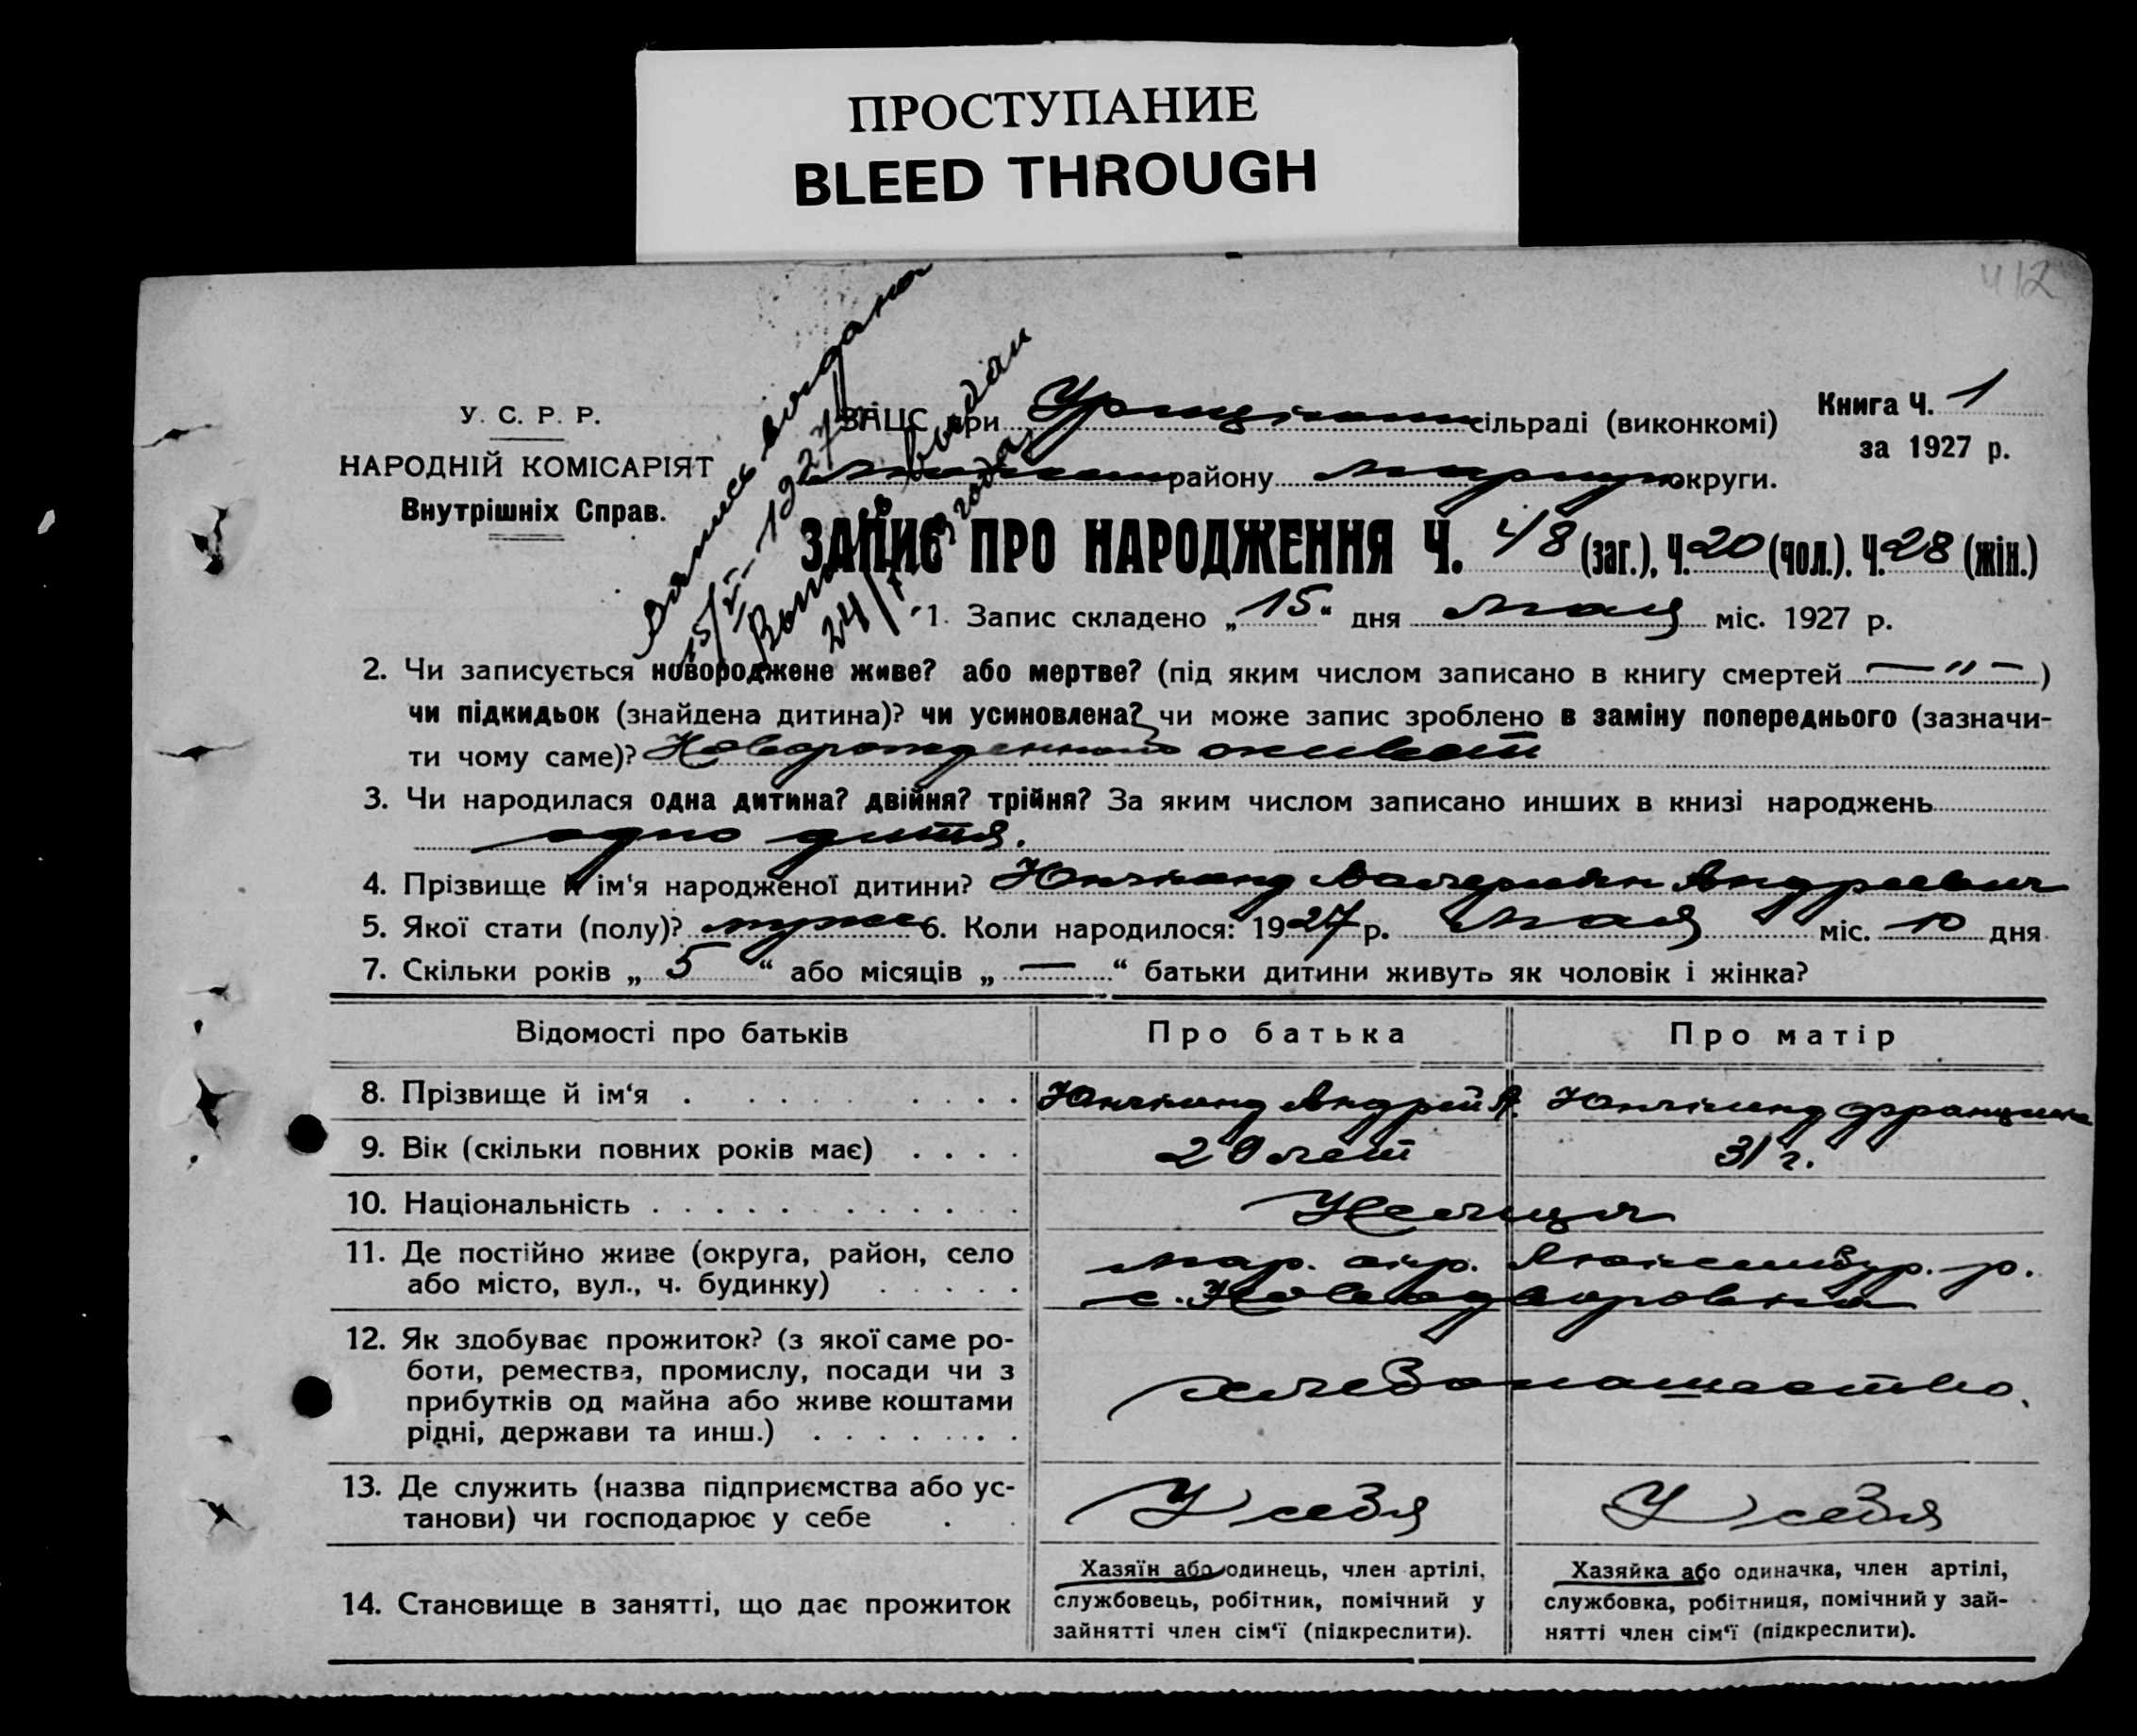 ПРОСТУПАНИЕ
BLEED THROUGH
412
У. С. Р. Р.
НАРОДНІЙ КОМІСАРІЯТ
Внутрішніх Справ.
Книга Ч. 1
за 1927 р.
ЗАЦС при сільраді (виконкомі)
району округи.
ЗАПИС ПРО НАРОДЖЕННЯ Ч. 48 (заг.), Ч. 20 (чол.). Ч. 28 (жін.)
1. Запис складено „15“ дня мая міс. 1927 р.
2. Чи записується новороджене живе? або мертве? (під яким числом записано в книгу смертей — " —)
чи підкидьок (знайдена дитина)? чи усиновлена? чи може запис зроблено в заміну попереднього (зазначи-
ти чому саме)?
3. Чи народилася одна дитина? двійня? трійня? За яким числом записано инших в книзі народжень
одно дитя.
4. Прізвище й ім‘я народженої дитини? Андреевич
5. Якої стати (полу)? муж 6. Коли народилося: 1927 р. мая міс. 10 дня
7. Скільки років „ 5 “ або місяців „ — “ батьки дитини живуть як чоловік і жінка?
Відомості про батьків Про батька Про матір
8. Прізвище й ім‘я Андрей
9. Вік (скільки повних років має) 29 лет 31 г.
10. Національність Немцы
11. Де постійно живе (округа, район, село мар. окр. р.
або місто, вул., ч. будинку) с.
12. Як здобуває прожиток? (з якої саме ро-
боти, ремества, промислу, посади чи з
прибутків од майна або живе коштами
рідні, держави та инш.)
хлебопашество.
13. Де служить (назва підприємства або ус-
танови) чи господарює у себе У себя У себя
14. Становище в занятті, що дає прожиток
Хазяїн або одинець, член артілі,
службовець, робітник, помічний у
зайнятті член сім‘ї (підкреслити).
Хазяйка або одиначка, член артілі,
службовка, робітниця, помічний у зай-
нятті член сім‘ї (підкреслити).